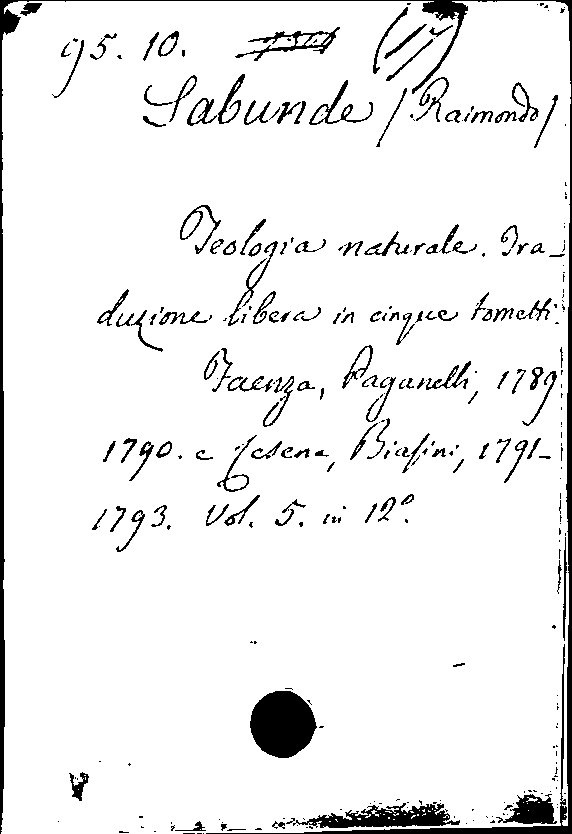 95. 10. (17)
Sabunde (Raimondo)
Teologia naturale. Tra-
duzione libera in cinque tometti.
Faenza, Paganelli, 1789
1790. e Cesena, Biasini, 1791-
1793. Vol. 5. in 12º.